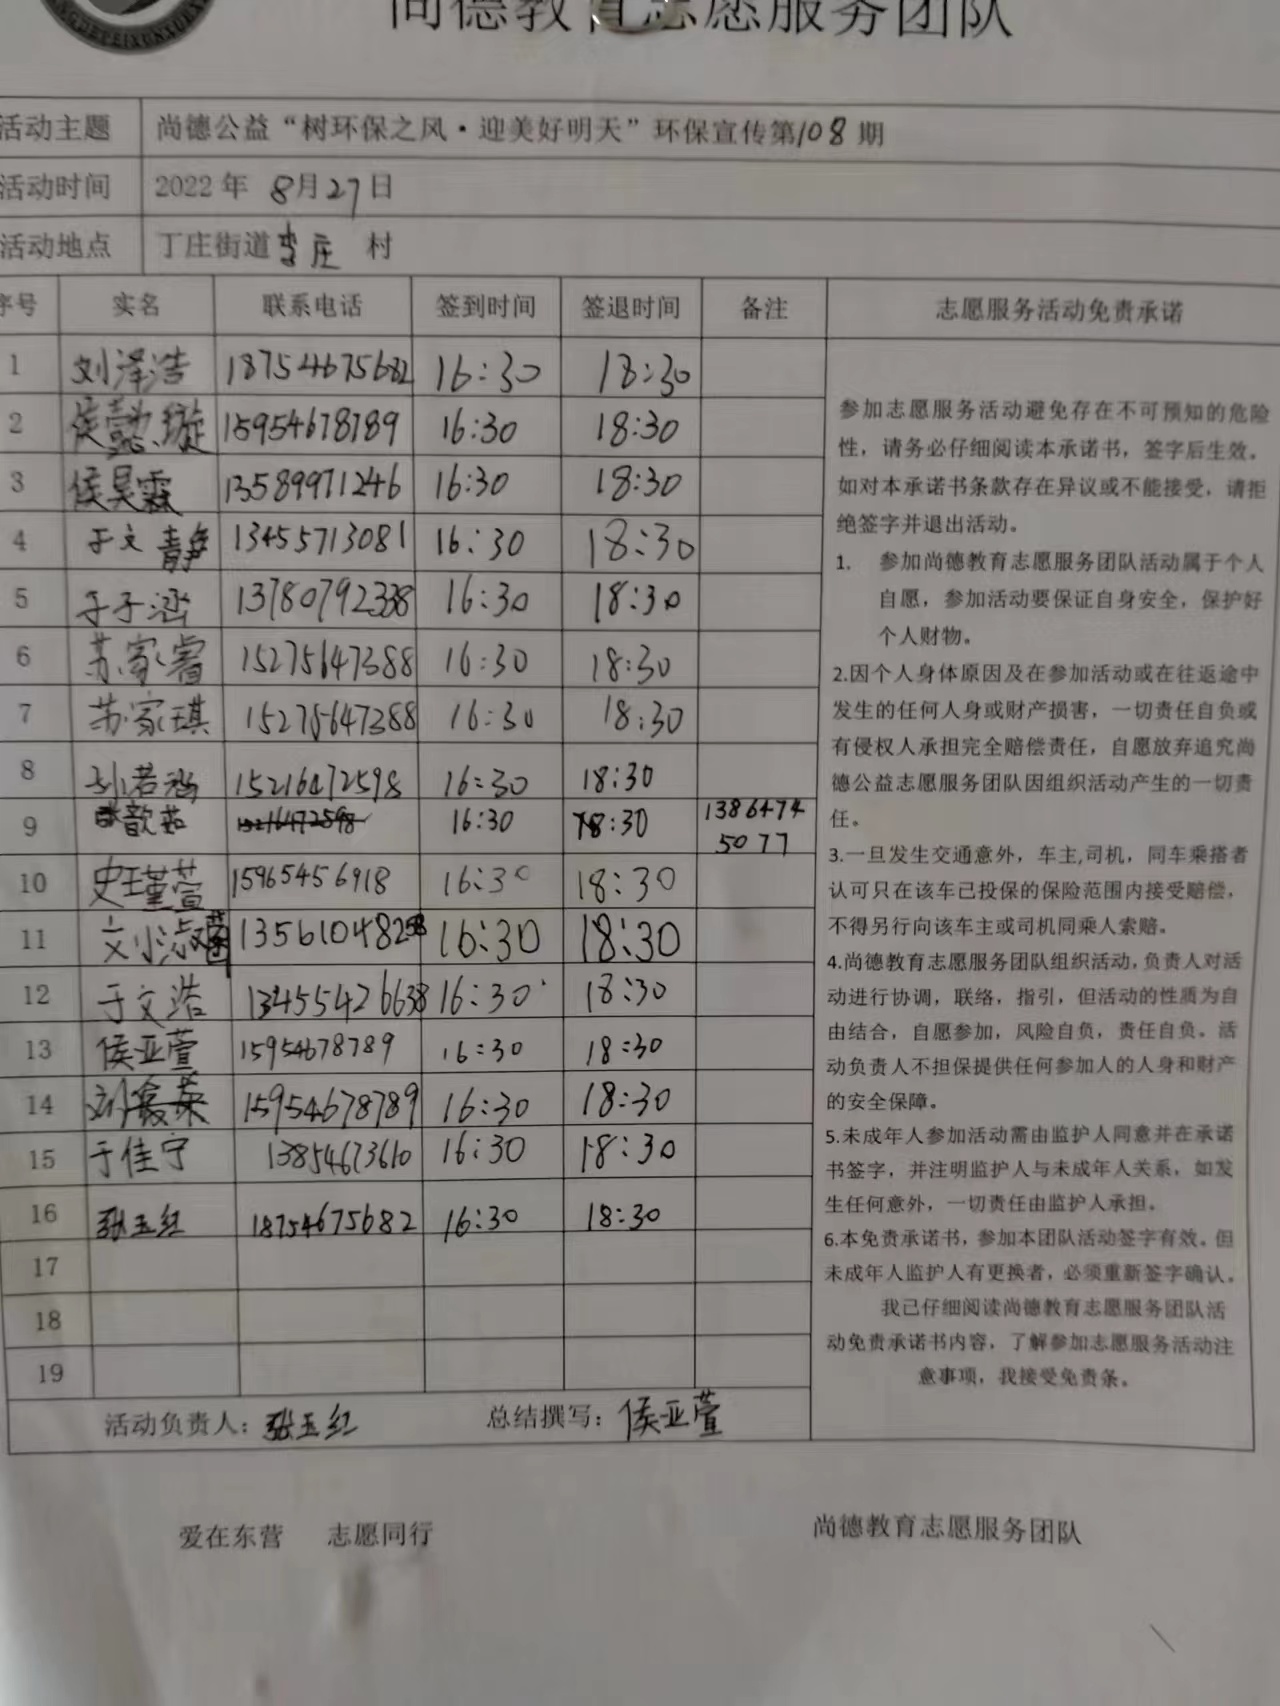 尚德教育志愿服务团队
活动主题 尚德公益“树环保之风·迎美好明天”环保宣传第108期
活动时间 2022年 8月27日
活动地点 丁庄街道李庄 村
序号 实名 联系电话 签到时间 签退时间 备注 志愿服务活动免责承诺
1 刘泽浩 18754675682 16:30 18:30
2 侯懿璇 15954678789 16:30 18:30
3 侯昊霖 13589971246 16:30 18:30
4 于文静 13455713081 16:30 18:30
5 于子涵 13780792338 16:30 18:30
6 苏家睿 15275647388 16:30 18:30
7 苏家琪 15275647388 16:30 18:30
8 孙若涵 15216472598 16:30 18:30
9 歆茹 15216472598 16:30 18:30 1386474
5077
10 史瑾萱 15965456918 16:30 18:30
11 刘淑菌 13561048258 16:30 18:30
12 于文浩 13455426638 16:30 18:30
13 侯亚萱 15954678789 16:30 18:30
14 刘 15954678789 16:30 18:30
15 于佳宁 13854673610 16:30 18:30
16 张玉红 18754675682 16:30 18:30
17
18
19
参加志愿服务活动避免存在不可预知的危险
性，请务必仔细阅读本承诺书，签字后生效。
如对本承诺书条款存在异议或不能接受，请拒
绝签字并退出活动。
1. 参加尚德教育志愿服务团队活动属于个人
自愿，参加活动要保证自身安全，保护好
个人财物。
2.因个人身体原因及在参加活动或在往返途中
发生的任何人身或财产损害，一切责任自负或
有侵权人承担完全赔偿责任，自愿放弃追究尚
德公益志愿服务团队因组织活动产生的一切责
任。
3.一旦发生交通意外，车主,司机，同车乘搭者
认可只在该车已投保的保险范围内接受赔偿，
不得另行向该车主或司机同乘人索赔。
4.尚德教育志愿服务团队组织活动,负责人对活
动进行协调，联络，指引，但活动的性质为自
由结合，自愿参加，风险自负，责任自负。活
动负责人不担保提供任何参加人的人身和财产
的安全保障。
5.未成年人参加活动需由监护人同意并在承诺
书签字，并注明监护人与未成年人关系，如发
生任何意外，一切责任由监护人承担。
6.本免责承诺书，参加本团队活动签字有效。但
未成年人监护人有更换者，必须重新签字确认。
我已仔细阅读尚德教育志愿服务团队活
动免责承诺书内容，了解参加志愿服务活动注
意事项，我接受免责条。
活动负责人：张玉红 总结撰写：侯亚萱
爱在东营 志愿同行
尚德教育志愿服务团队